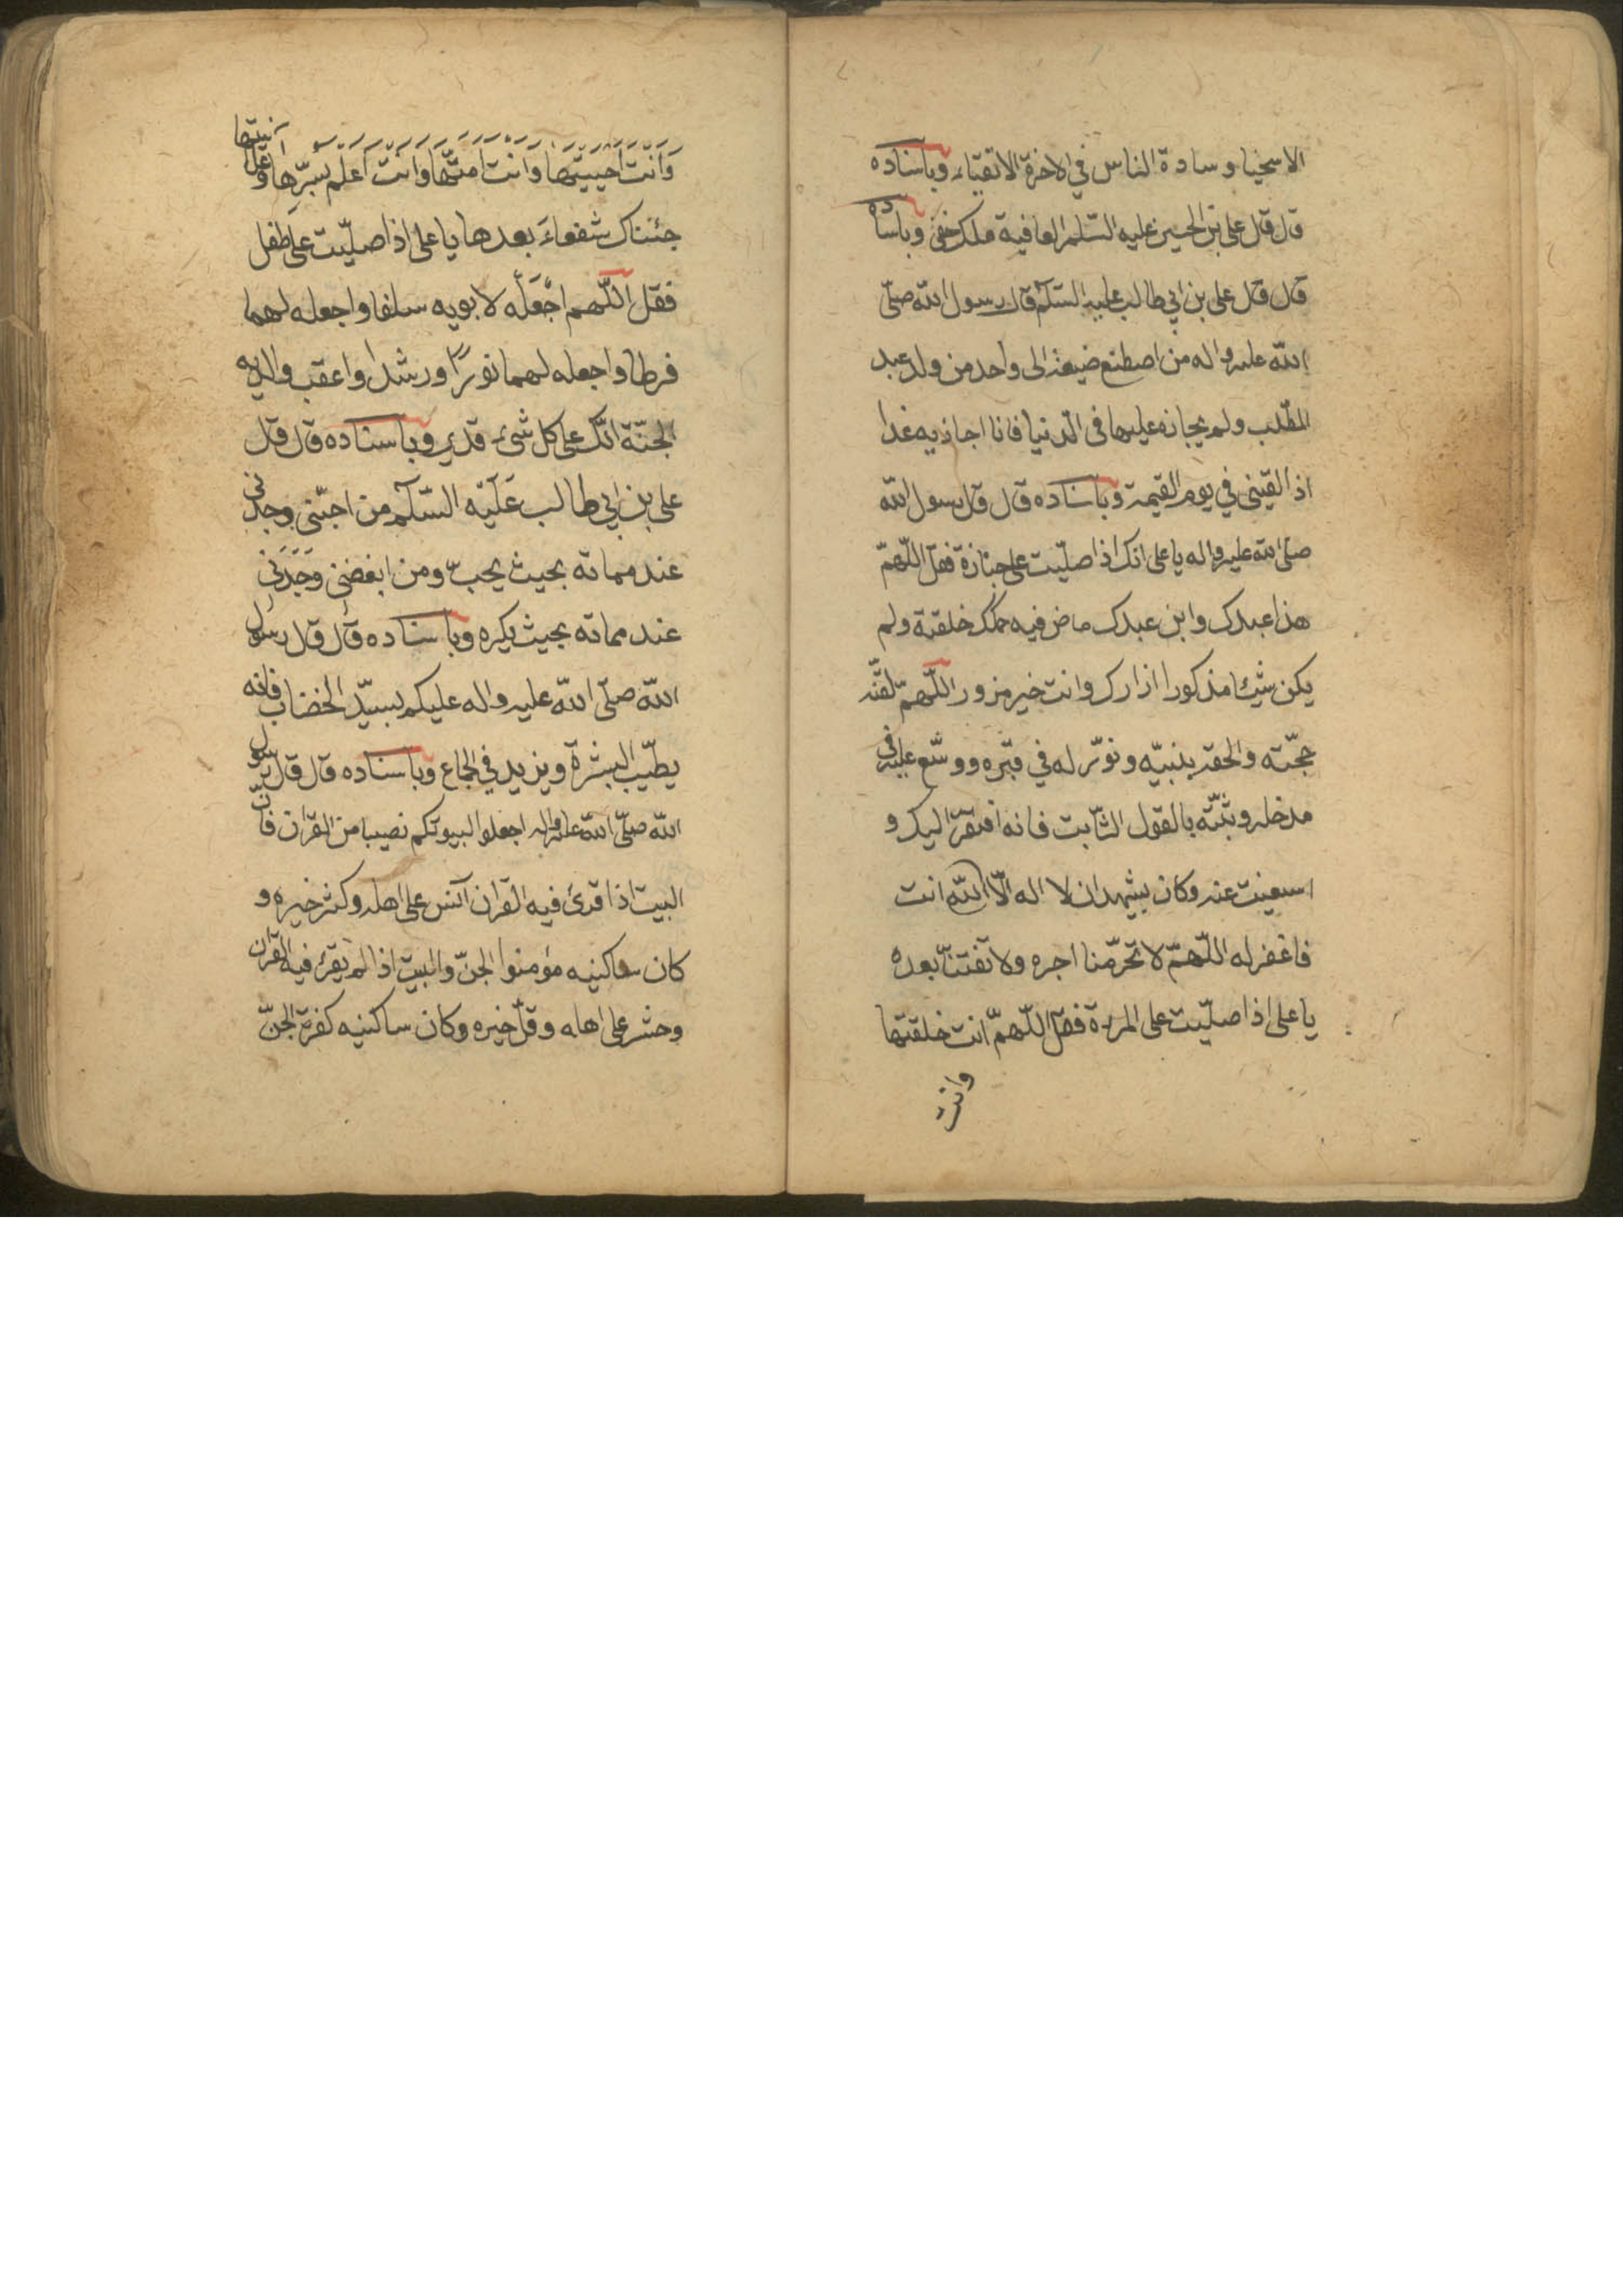 الاسخيا وسادة الناس في الاخرة الاتقياء وباسناده
قال قال على بن الحسين عليه السّلم العافية ملك خفى وباسناده
قال قال على بن ابي طالب عليه السّلم قال رسول الله صلّى
الله عليه واله من اصطنع ضيعة الى واحد من ولد عبد
المطّلب ولم يجازه عليها فى الدّنيا فانا اجازيه غدا
اذا لقينى في يوم القيمة وباسناده قال قال رسول الله
صلّى الله عليه واله يا على انك اذا صلّيت على جنازة فقل اللّهمّ
هذا عبدك وابن عبدك ماض فيه حكمك خلقته ولم
يكن شيئا مذكورا ازارك وانت خير مزور اللّهمّ لقّنه
حجّته والحقه بنبيّه ونوّر له في قبره ووسّع عليه فى
مدخله وثبّته بالقول الثّابت فانه افتقر اليك و
استغنيت عنه وكان يشهد ان لا اله الّا الله انت
فاغفر له اللّهمّ لا تحرّمنا اجره ولا تفتنّا بعده
يا على اذا صلّيت على المرءة فقل اللّهمّ انت خلقتها
وانت
وَاَنْتَ اَحييتها وَانت امتّها وَانت اَعلم بسرّها وعلانيتها
جئناك شفعاءَ بعدها يا على اذا صلّيت عَلى طفل
فقل اللّهم اجْعَلْه لابويه سلفا واجعله لهما
فرطا واجعله لهما نورًا ورشدا واعقب والديه
الجنّة انّك على كل شىء قدير وباسناده قال قال
على بن ابي طالب عَليْه السّلم من احبّنى وجدنى
عند مماته بحيث يحبّ ومن ابغضنى وَجَدَنى
عند مماته بحيث يكره وباسناده قال قال رسول
الله صلّى الله عليه واله عليكم بسيّد الخضاب فانه
يطيّب البشرة ويزيد في الجماع وباسناده قال قال رسول
الله صلّى الله عليه واله اجعلوا لبيوتكم نصيبا من القران فانّ
البيت اذا قرئ فيه القران آنس على اهله وكثر خيره و
كان ساكنيه مؤمنوا الجنّ والبيت اذا لم يقرء فيه القران
وحشر على اهله وقلّ خيره وكان ساكنيه كفرة الجنّ